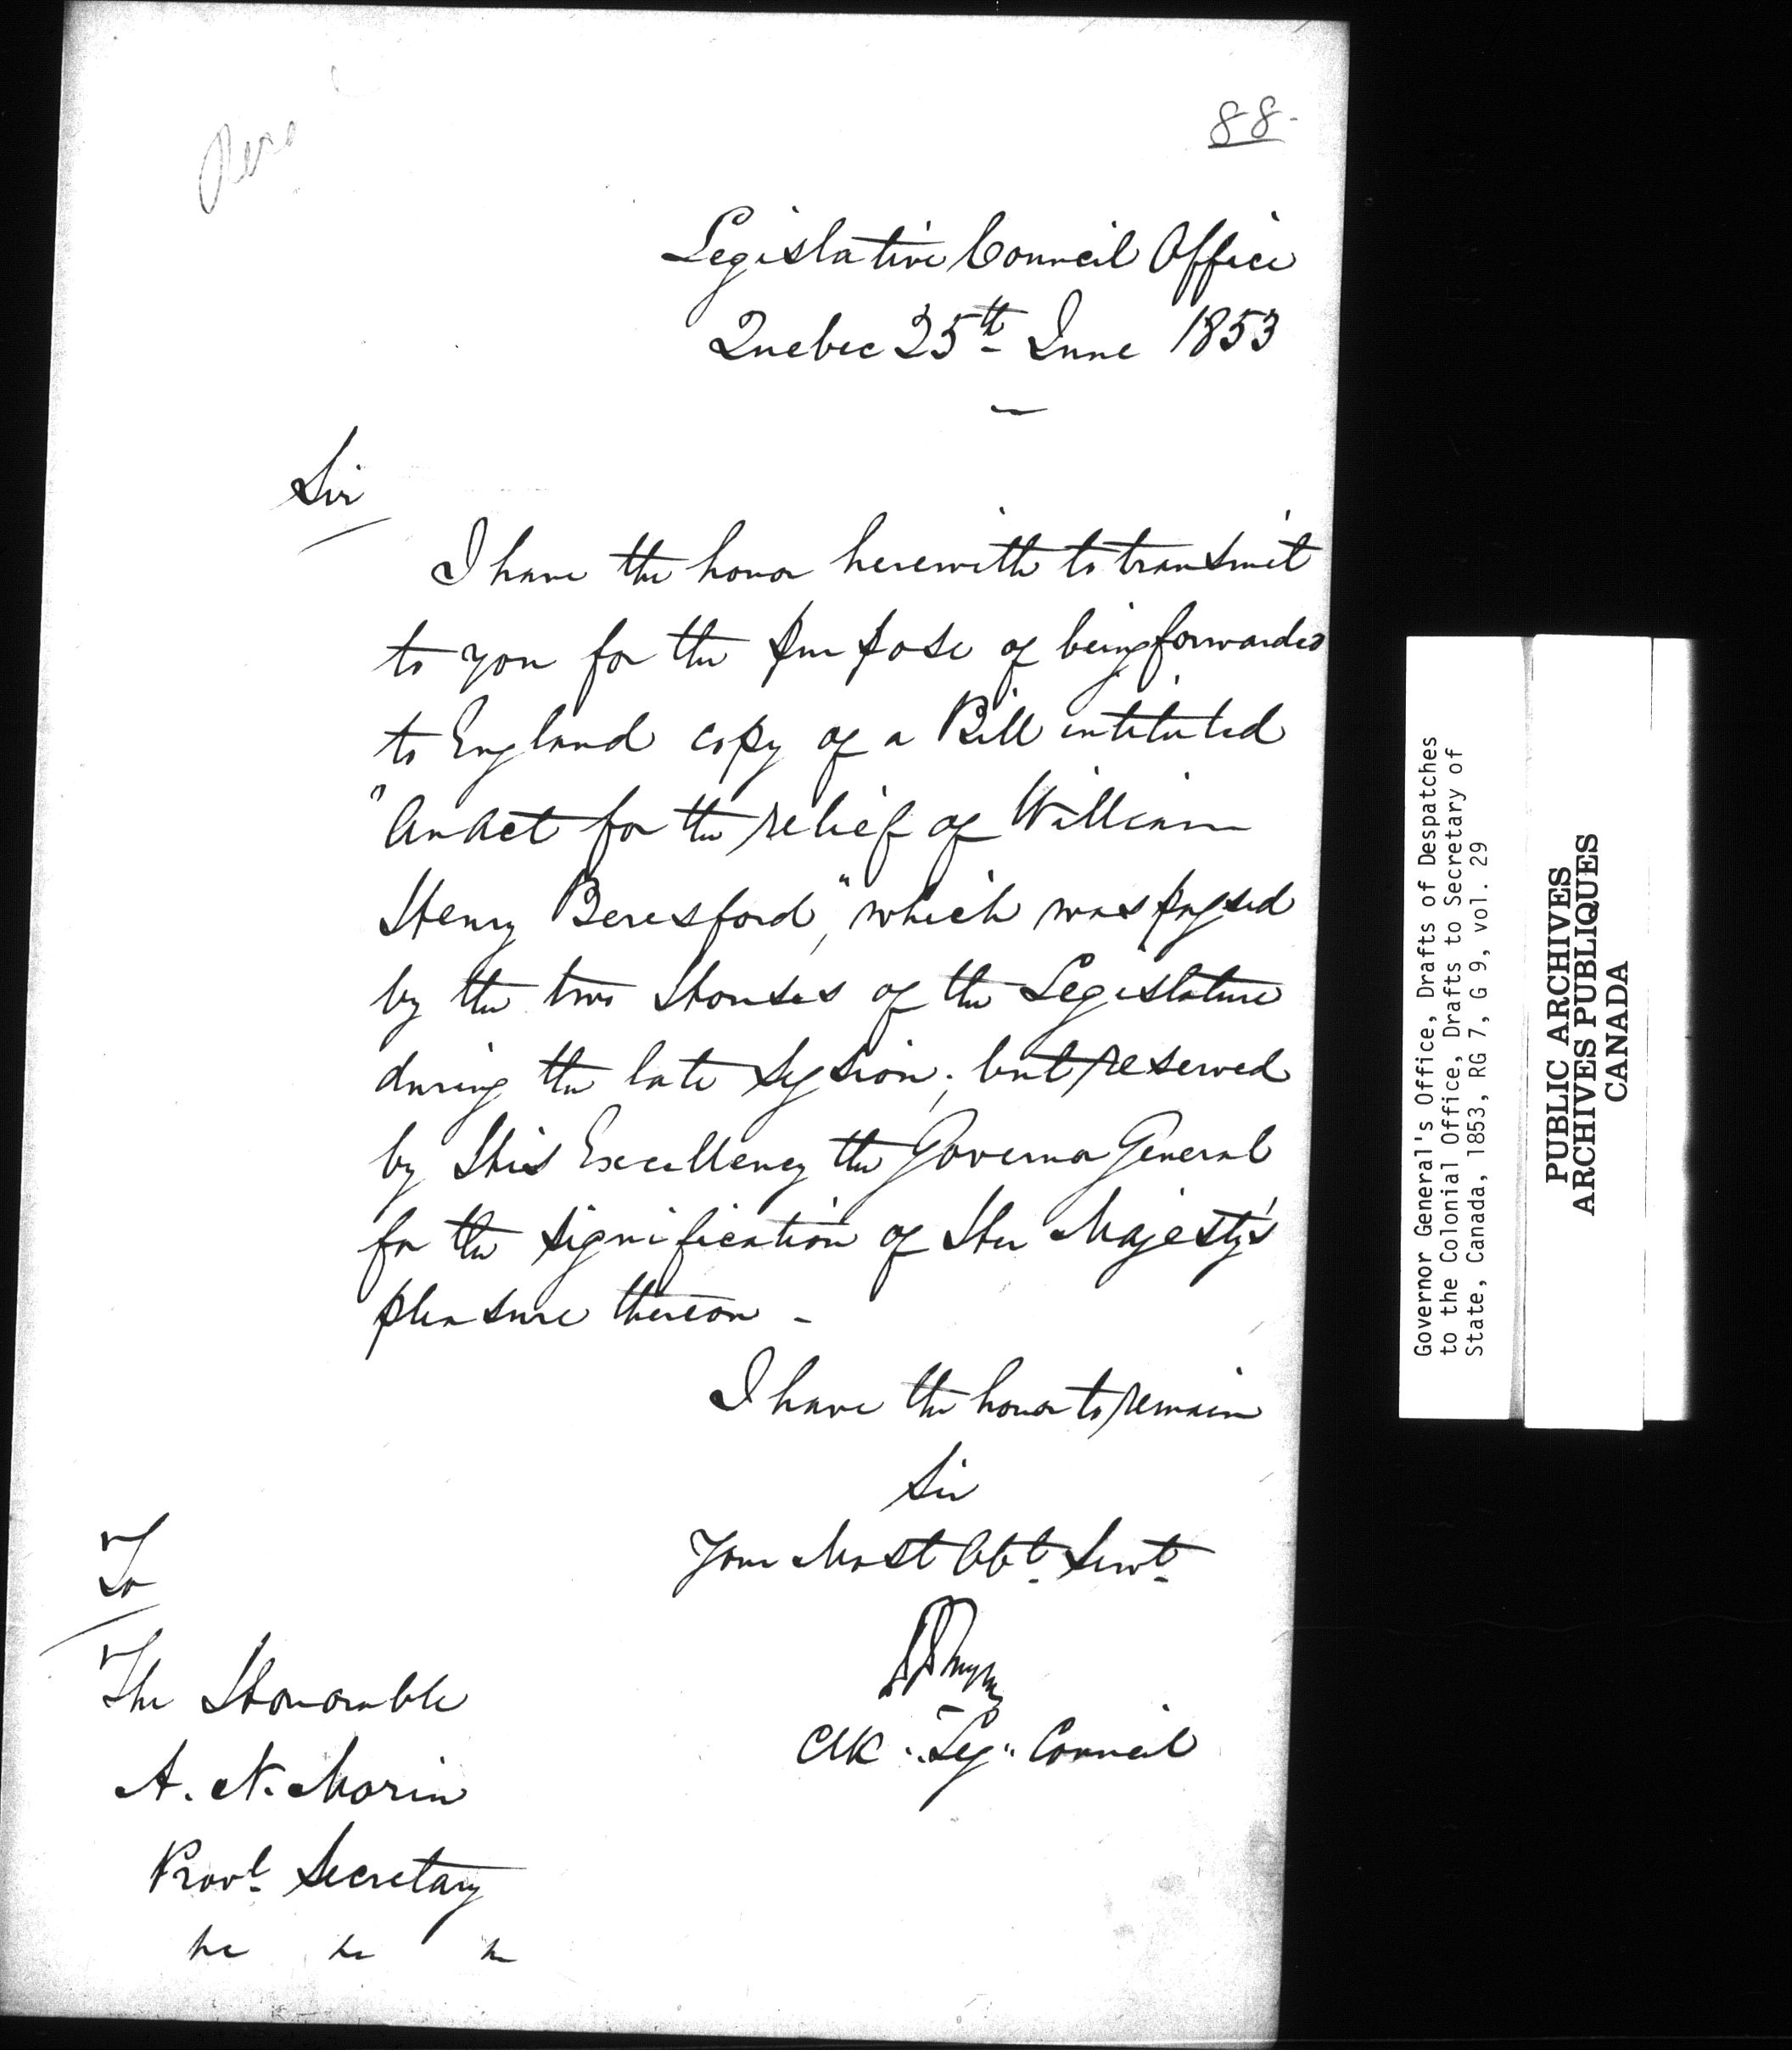 88-
Legislative Council Office
Quebec 25th June 1853
Sir
I have the honor herewith to transmit
to you for the purpose of being forwarded
to England copy of a Bill intituled
"An Act for the relief of William
Henry Beresford," which was passed
by the two Houses of the Legislature
during the late Session; but reserved
by His Excellency the Governor General
for the signification of Her Majesty's
pleasure thereon -
I have the honor to remain
Sir
Your Most Obt. Servt.
Clk. Leg. Council
To
The Honorable
A. N. Morin
Provl. Secretary
&c &c &c
Governor General's Office, Drafts of Despatches
to the Colonial Office, Drafts to Secretary of
State, Canada, 1853, RG 7, G 9, vol. 29
PUBLIC ARCHIVES
ARCHIVES PUBLIQUES
CANADA